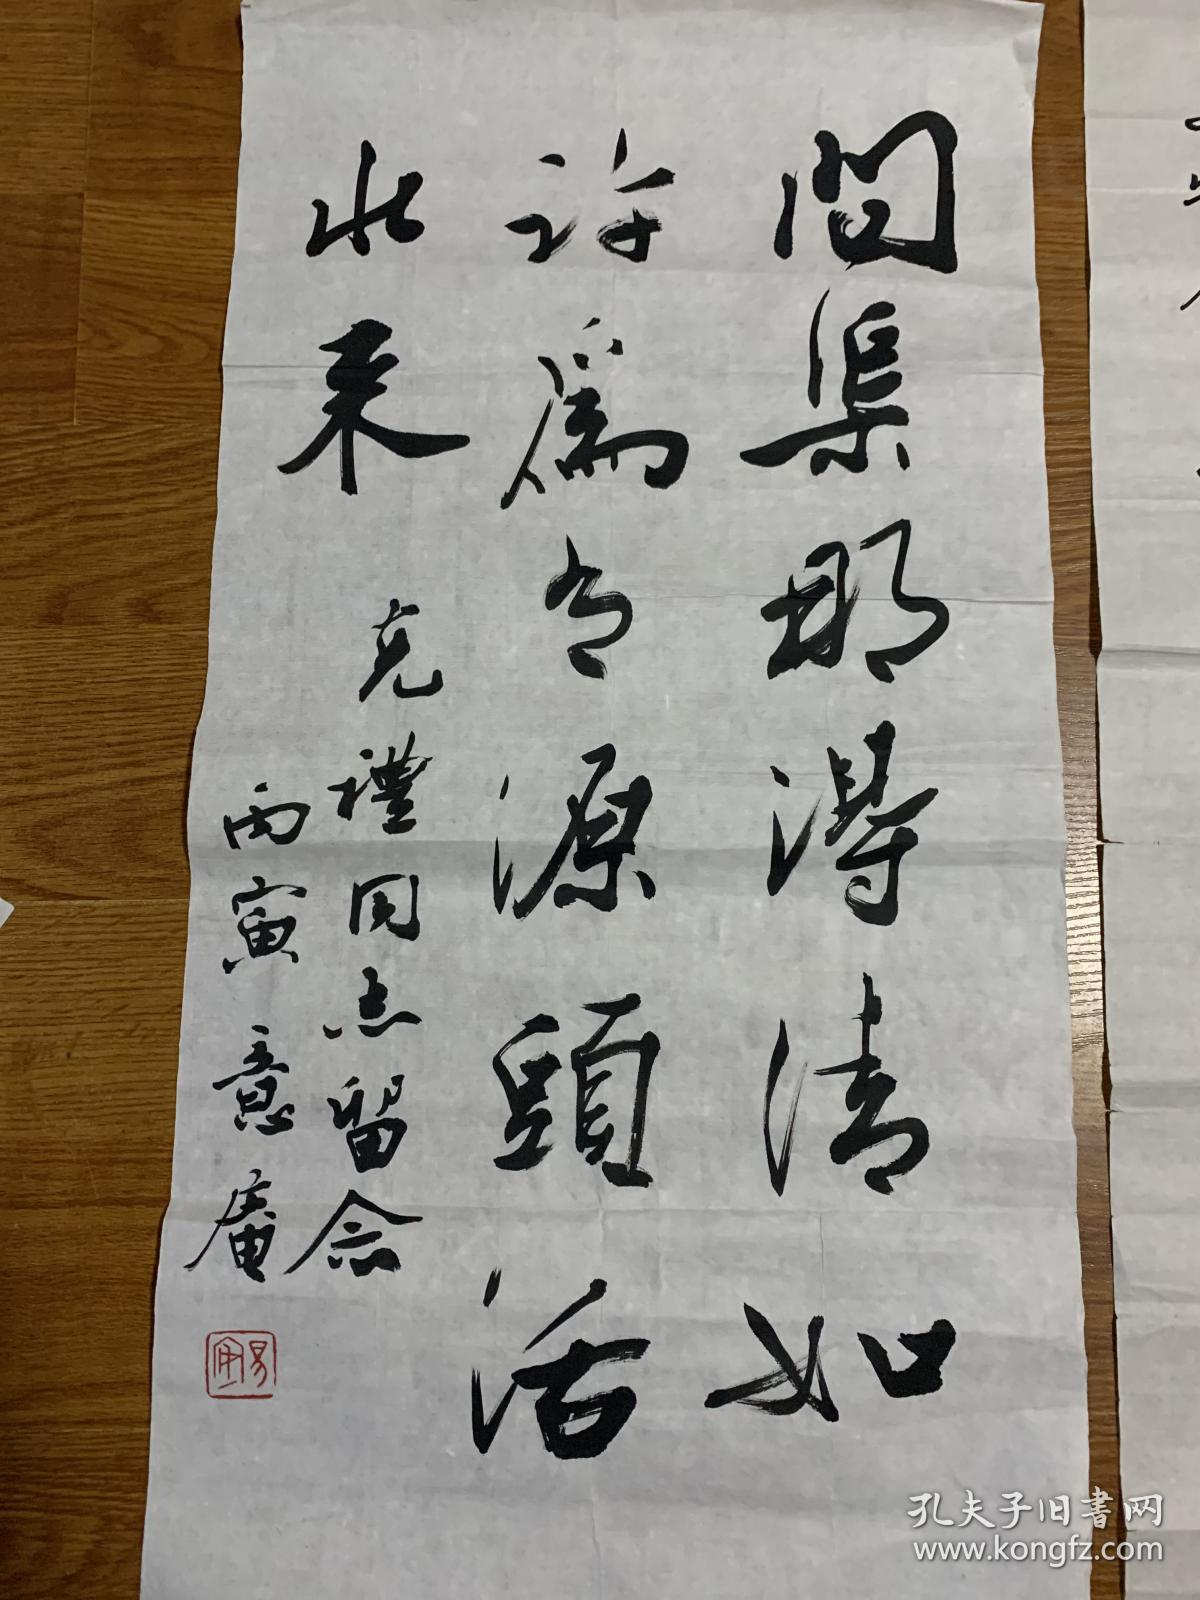 問渠那得清如
許為有源頭活
水來
克禮同志留念
丙寅意庵
孔夫子旧書网
www.kongfz.com